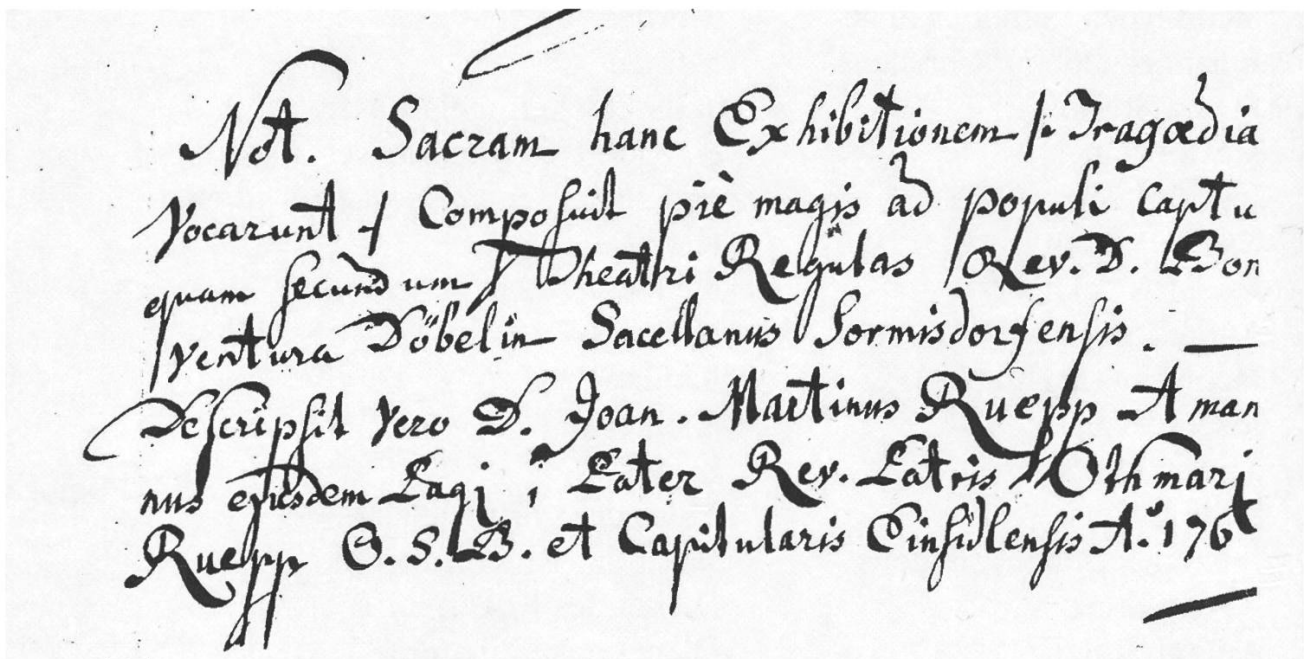 Not. Sacram hanc Exhibitionem /: Tragœdia
vocarunt :/ Composuit piè magis ad populi captu
quam secundum Theatri Regulas Rev. D. Bon
ventura Döbelin Sacellanus Sormisdorfensis. —
Descripsit vero D. Joan. Martinus Ruepp Aman
nus ejusdem Pagi, Pater Rev. Patris Othmari
Ruepp O. S. B. et Capitularis Einsidlensis A.º 176